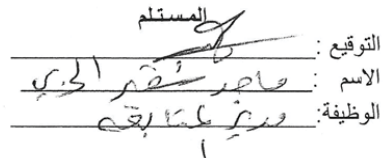 المستلم
التوقيع :
الاسم : ماجد شقير الحربي
الوظيفة: مدير المتابعة